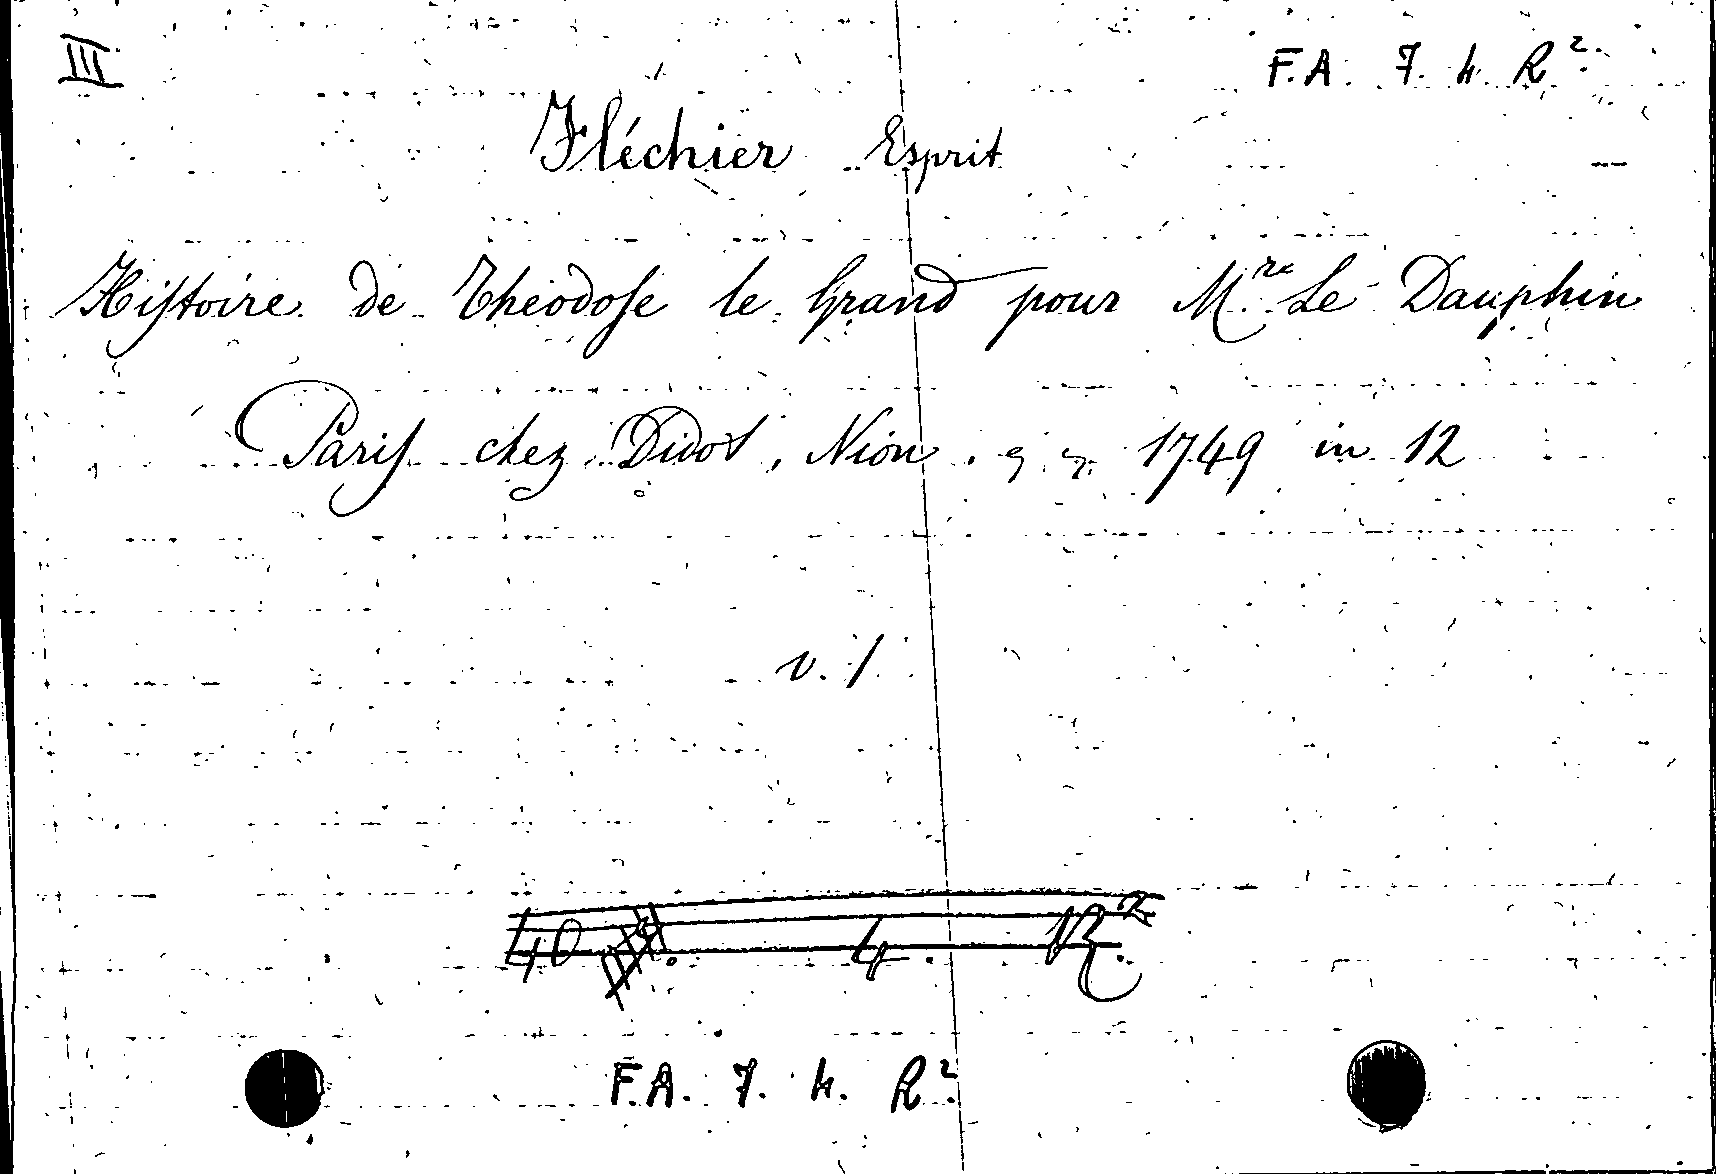 III
F.A. 7. h. R².
Fléchier Esprit
Hiſtoire de Theodoſe le Grand pour Mʳᵉ Le Dauphin
Pariſ chez Didot, Nion. 1749 in 12
v. 1
40 . 4. R².
F.A. 7. h. R².